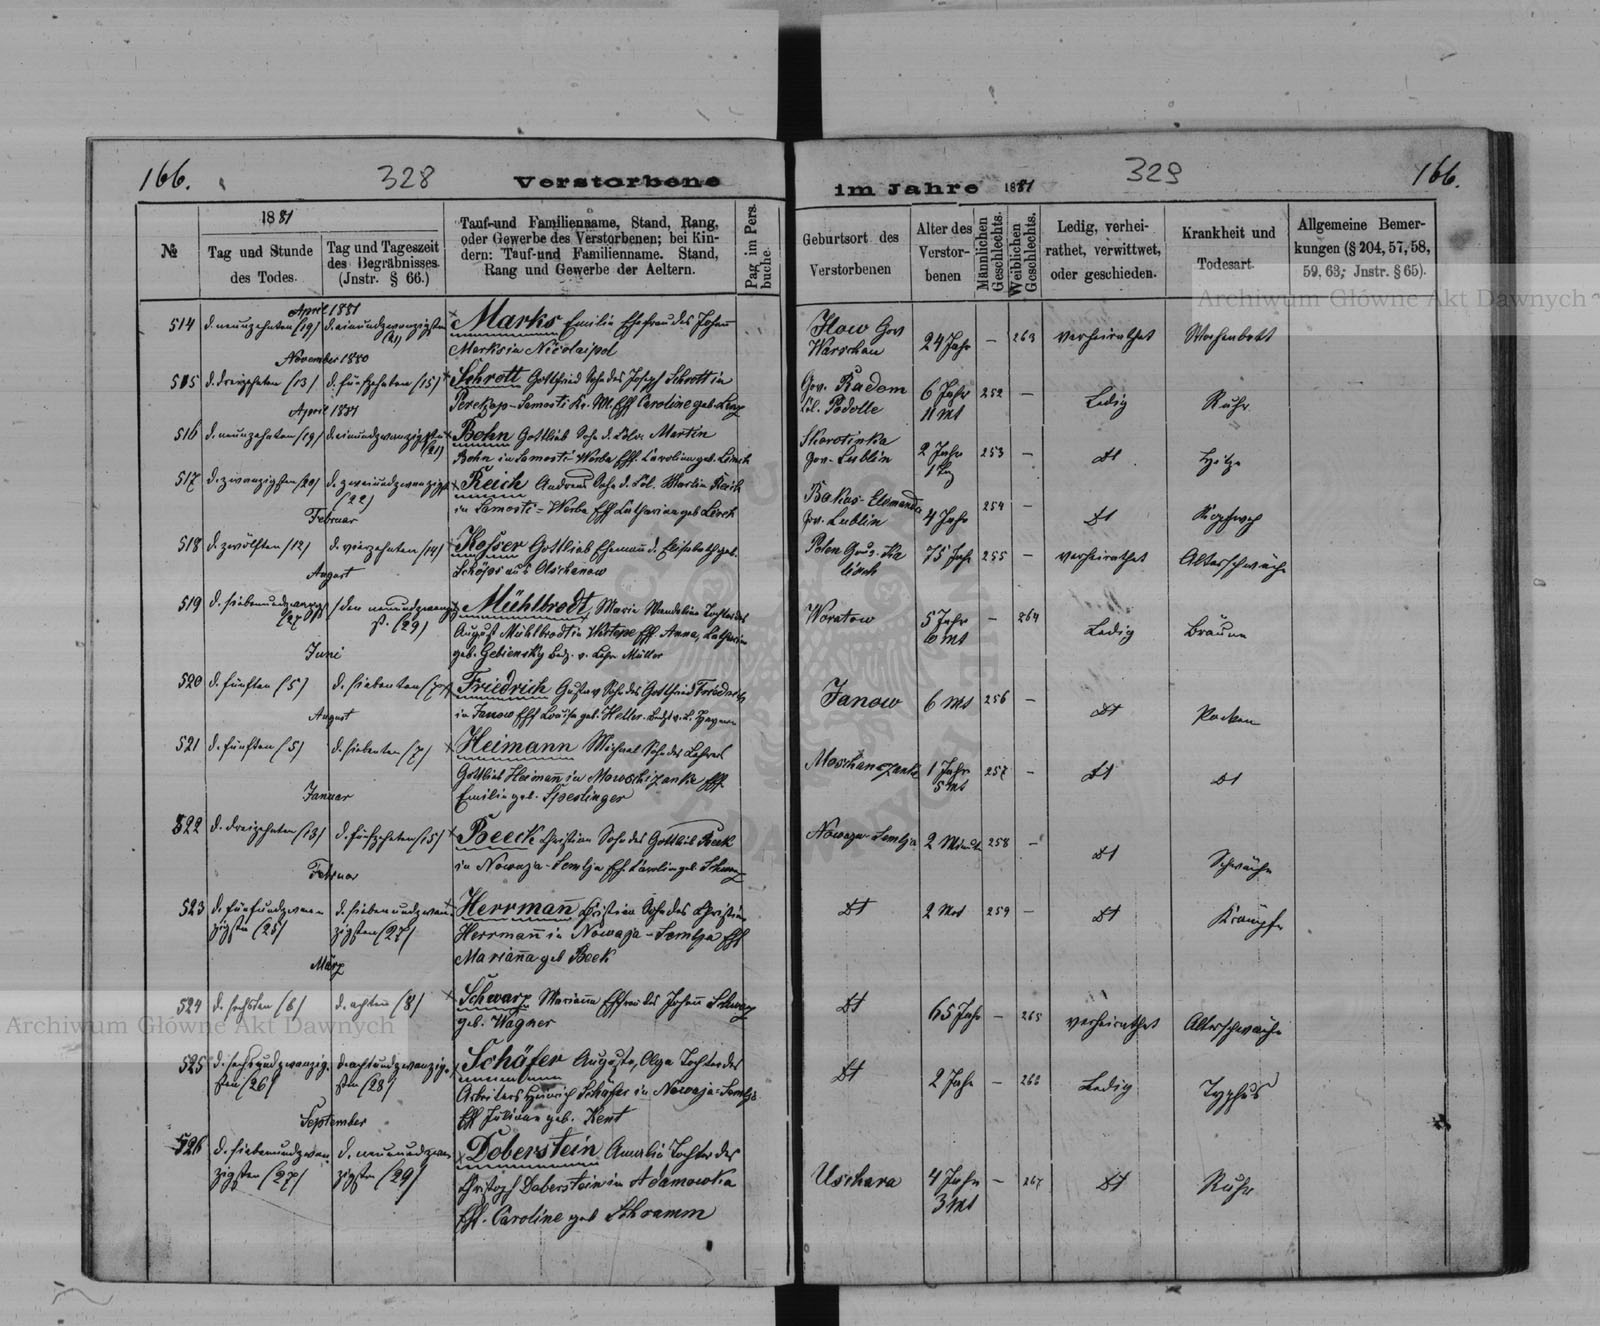 166.
328
Verstorbene
im Jahre 1881
329
166.
№
1881
Tag und Stunde
des Todes.
Tag und Tageszeit
des Begräbnisses.
(Jnstr. § 66.)
Tauf-und Familienname, Stand, Rang,
oder Gewerbe des Verstorbenen; bei Kin-
dern: Tauf-und Familienname. Stand,
Rang und Gewerbe der Aeltern.
Pag im Pers.
buche.
Geburtsort des
Verstorbenen
Alter des
Verstor-
benen
Männlichen
Geschlechts.
Weiblichen
Geschlechts.
Ledig, verhei-
rathet, verwittwet,
oder geschieden.
Krankheit und
Todesart.
Allgemeine Bemer-
kungen (§ 204, 57, 58,
59, 63; Jnstr. § 65).
Archiwum Główne Akt Dawnych
April 1881
514
d. neunzehnten (19)
d. einundzwanzigsten
(21)
Marks Emilie Ehefrau des Johann
Marks in Nicolaipol
Ilow Gov
Warschau
24 Jahr
–
263
verheirathet
Wochenbett
November 1880
515
d. dreizehnten (13)
d. fünfzehnten (15)
Schrott Gottfried Sohn des Josef Schrott in
Caroline geb.
Gov. Radom
Col. Podolle
6 Jahr
11 Mt
252
–
Ledig
Ruhr
April 1881
516
d. neunzehnten (19)
d. einundzwanzigsten
(21)
Bohn Gottlieb Sohn d. Martin
Bohn in Samosti Werba Ehf. Caroline geb.
Skorotinka
Gov. Lublin
2 Jahr
253
–
Dt
Hitze
517
d. zwanzigsten (20)
d. zweiundzwanzigst
(22)
Reich Andreas Sohn d. Col. Martin Reich
in Samosti-Werba Ehf Catharina geb Lerch
Gov. Lublin
4 Jahr
254
–
Dt
Februar
518
d. zwölften (12)
d. vierzehnten (14)
Kosser Gottlieb Ehemann d. Elisabeth geb.
aus Olschanow
Polen Gouv. Ka
lisch
75 Jahr
255
–
verheirathet
Altersschwäche
August
519
d. siebenundzwanzigst
(27)
den neunundzwanzig
st. (29)
Mühlbrodt, Maria Wandeline Tochter des
August Mühlbrodt in Ehf Anna, Catharina
geb. Gebiensky v. Lehr Müller
Woratow
5 Jahr
6 Mt
–
264
Ledig
Bräune
Juni
520
d. fünften (5)
d. siebenten (7)
Friedrich Gustav Sohn des Gottfried Friedrich
in Janow Ehf Louise geb. Heller.
Janow
6 Mt
256
–
Dt
Pocken
August
521
d. fünften (5)
d. siebenten (7)
Heimann Michael Sohn des Lehrers
Gottlieb Heimann in Moschizanka Ehf.
Emilie geb. Sperlinger
Moschanozanke
1 Jahr
5 Mt
257
–
Dt
Dt
Januar
522
d. dreizehnten (13)
d. fünfzehnten (15)
Beeck Christian Sohn des Gottlieb Beek
in Nowaja-Semlja Ehf. Carolin geb. Schwarz
Nowaja-Semlja
2 Minute
258
–
Dt
Schwäche
Februar
523
d. fünfundzwan
zigsten (25)
d. siebenundzwan
zigsten (27)
Herrmann Christian Sohn des Christian
Herrmann in Nowaja-Semlja Ehf
Marianna geb Beek
Dt
2 Mt
259
–
Dt
Krämpfe
März
524
d. sechsten (6)
d. achten (8)
Schwarz Marianna Ehefrau des Johann Schwarz
geb. Wagner
Dt
65 Jahr
–
265
verheirathet
Altersschwäche
Archiwum Główne Akt Dawnych
525
d. sechsundzwanzig-
sten (26)
d. achtundzwanzig-
sten (28)
Schäfer Auguste, Olga Tochter des
Arbeiters Heinrich Schäfer in Nowaja-Semlja
Ehf Juliane geb. Kent
Dt
2 Jahr
–
Ledig
Typhus
September
526
d. siebenundzwan
zigsten (27)
d. neunundzwan
zigsten (29)
Doberstein Amalie Tochter des
Christoph Doberstein in Adamowka
Ehf. Caroline geb Schramm
Uschara
4 Jahr
3 Mt
–
267
Dt
Ruhr